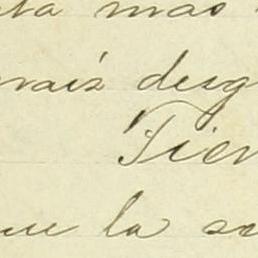 ta mas
raiz desg
Tier
ue la so